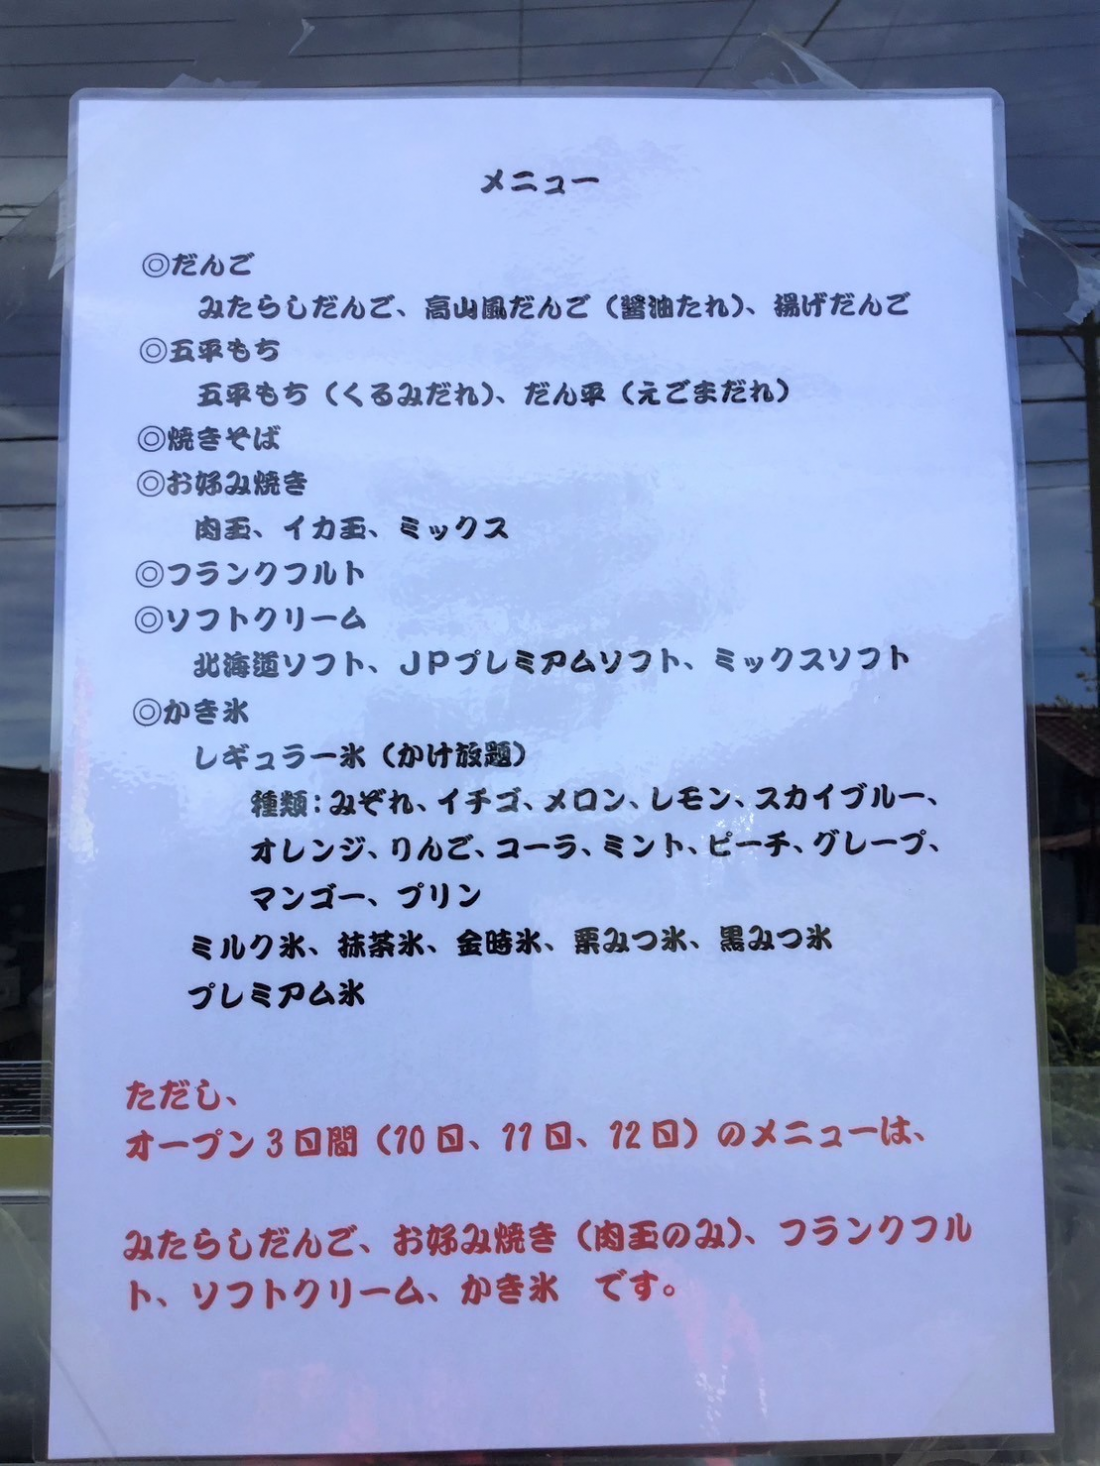 メニュー
◎だんご
みたらしだんご、高山風だんご（醤油たれ）、揚げだんご
◎五平もち
五平もち（くるみだれ）、だん平（えごまだれ）
◎焼きそば
◎お好み焼き
肉玉、イカ玉、ミックス
◎フランクフルト
◎ソフトクリーム
北海道ソフト、ＪＰプレミアムソフト、ミックスソフト
◎かき氷
レギュラー氷（かけ放題）
種類：みぞれ、イチゴ、メロン、レモン、スカイブルー、
オレンジ、りんご、コーラ、ミント、ピーチ、グレープ、
マンゴー、プリン
ミルク氷、抹茶氷、金時氷、栗みつ氷、黒みつ氷
プレミアム氷
ただし、
オープン３日間（10日、11日、12日）のメニューは、
みたらしだんご、お好み焼き（肉玉のみ）、フランクフル
ト、ソフトクリーム、かき氷　です。